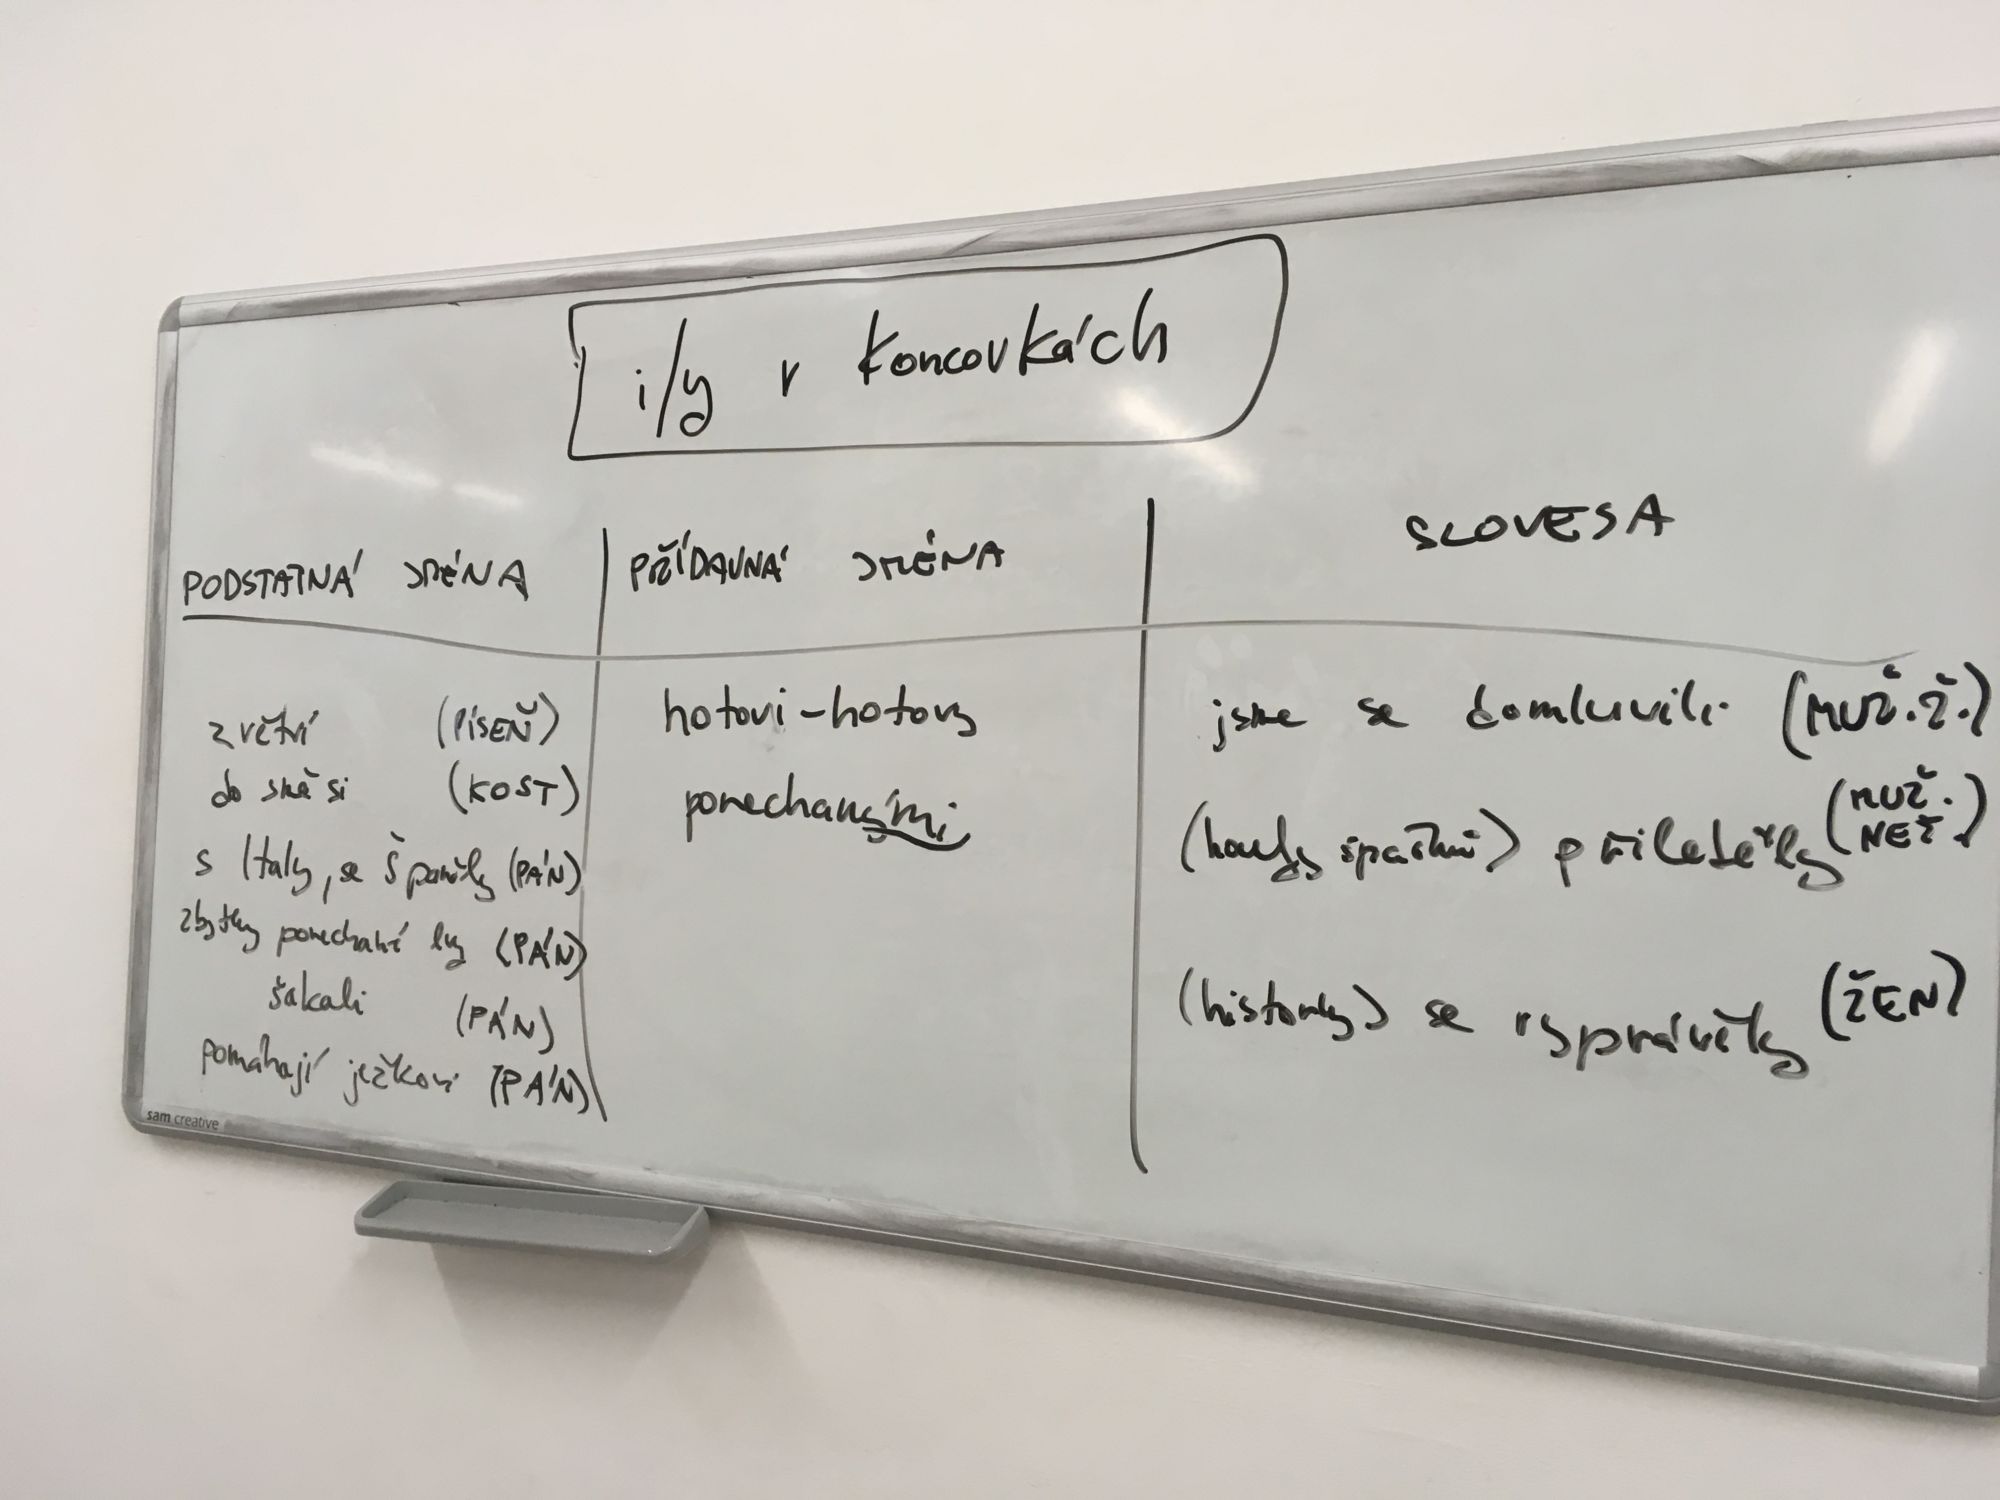 i/y v koncovkách
PODSTATNÁ JMÉNA
PŘÍDAVNÁ JMÉNA
SLOVESA
z větví (PÍSEŇ)
do směsi (KOST)
s Italy, se Španěly (PÁN)
zbytky ponechané lvy (PÁN)
šakali (PÁN)
pomáhají ježkovi (PÁN)
hotovi - hotovy
ponechanými
jsme se domluvili (MUŽ. Ž.)
(houfy špačků) přiletěly (MUŽ. NEŽ.)
(historky) se vyprávěly (ŽEN)
sam creative